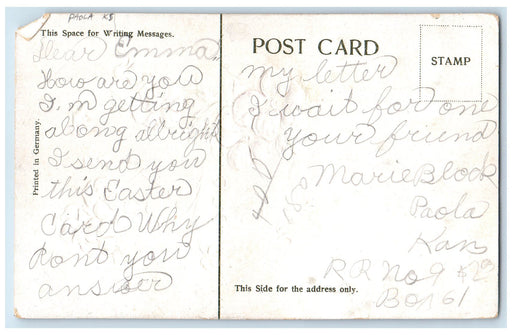 PAOLA KS
This Space for Writing Messages.
Dear Emma,
How are you
I.m getting
along allright
I send you
this Easter
Card Why
dont you
answer
Printed in Germany.
POST CARD
STAMP
my letter
I wait for one
your friend
Marie Block
Paola
Kan
R R No 9
Box 61
This Side for the address only.